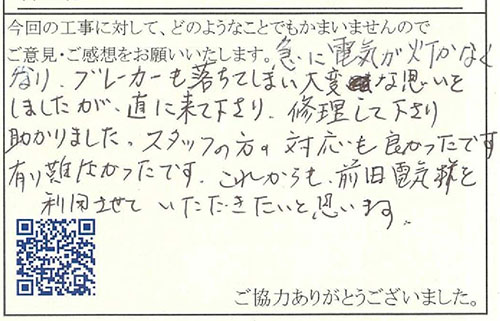 今回の工事に対して、どのようなことでもかまいませんので
ご意見・ご感想をお願いいたします。急に電気が灯かなく
なり、ブレーカーも落ちてしまい大変な思いを
しましたが、直に来て下さり、修理して下さり
助かりました。スタッフの方の対応も良かったです
有り難たかったです。これからも、前田電気様を
利用させていただきたいと思います。
ご協力ありがとうございました。